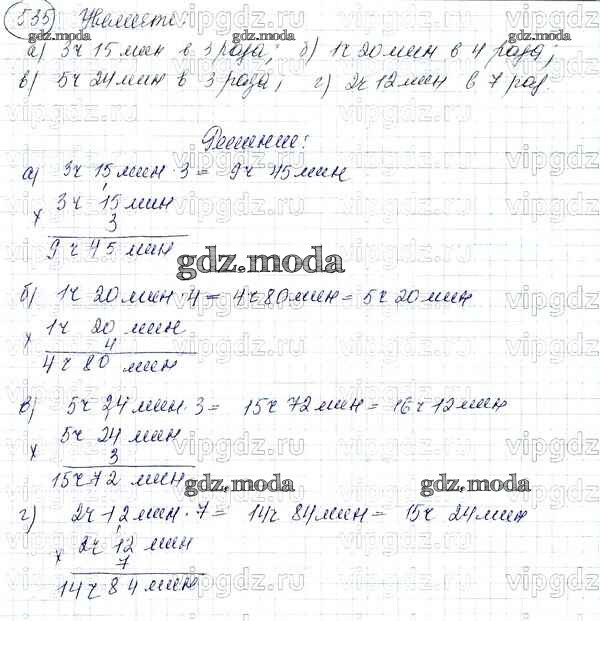 535 
а) 3ч 15мин в 3 раза; б) 1ч 20мин в 4 раза;
в) 5ч 24мин в 3 раза; г) 2ч 12мин в 7 раз.
Решение:
а) 3ч 15мин · 3 = 9ч 45мин
3ч 15мин
× 3
9ч 45 мин
gdz.moda
б) 1ч 20мин · 4 = 4ч 80мин = 5ч 20мин
1ч 20 мин
× 4
4ч 80 мин
gdz.moda
в) 5ч 24мин · 3 = 15ч 72мин = 16ч 12мин
5ч 24 мин
× 3
15ч 72 мин
gdz.moda gdz.moda
г) 2ч 12мин · 7 = 14ч 84мин = 15ч 24мин
2ч 12 мин
× 7
14ч 84 мин
vipgdz.ru